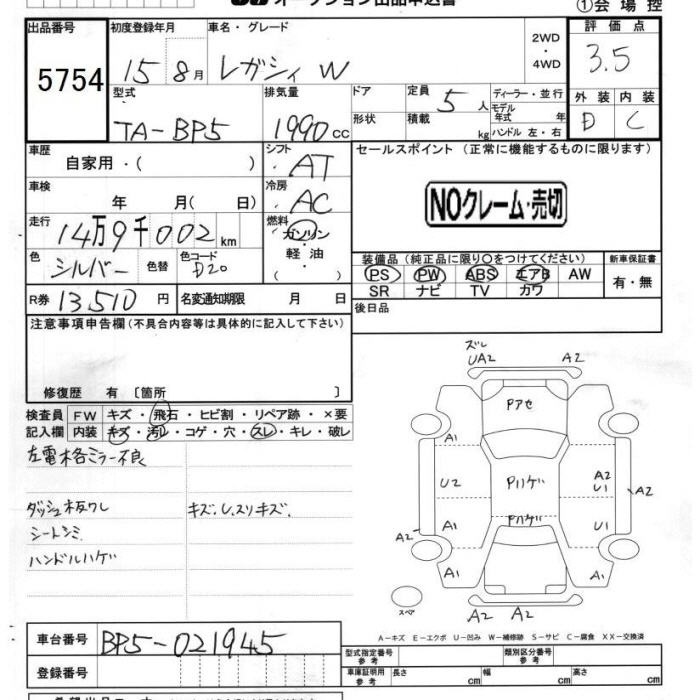 オークション出品申込書
①会場控
出品番号 5754
初度登録年月 15 8月
車名・グレード レガシィ W
2WD・4WD
評価点 3.5
外装 D 内装 C
型式 TA-BP5
排気量 1990cc
ドア 形状
定員 5人
積載 kg
ディーラー・並行
モデル年式 年
ハンドル 左・右
車歴 自家用・( )
シフト AT
セールスポイント (正常に機能するものに限ります)
車検 年 月( 日)
冷房 AC
NOクレーム・売切
走行 14万9千002km
燃料 ガソリン・軽油・
色 シルバー 色替 色コード D20
装備品 (純正品に限り○をつけてください)
新車保証書 有・無
PS PW ABS エアB AW
SR ナビ TV カワ
R券 13,510円 名変通知期限 月 日
後日品
注意事項申告欄 (不具合内容等は具体的に記入して下さい)
修復歴 有 〔箇所 〕
検査員記入欄
FW キズ・飛石・ヒビ割・リペア跡・×要
内装 キズ・汚レ・コゲ・穴・スレ・キレ・破レ
左電格ミラー不良
ダッシュ板ワレ キズ、U、スリキズ、
シートシミ
ハンドルハゲ
ズレ
UA2 A2
Pアセ
A1
U2 Pハゲ A2 U1 A2
Pハゲ
A1 U1
A2
A1 A1
スペア A2 A2
A-キズ E-エクボ U-凹み W-補修跡 S-サビ C-腐食 XX-交換済
車台番号 BP5-021945
型式指定番号 参考 類別区分番号 参考
登録番号
車庫証明用 参考 長さ cm 幅 cm 高さ cm